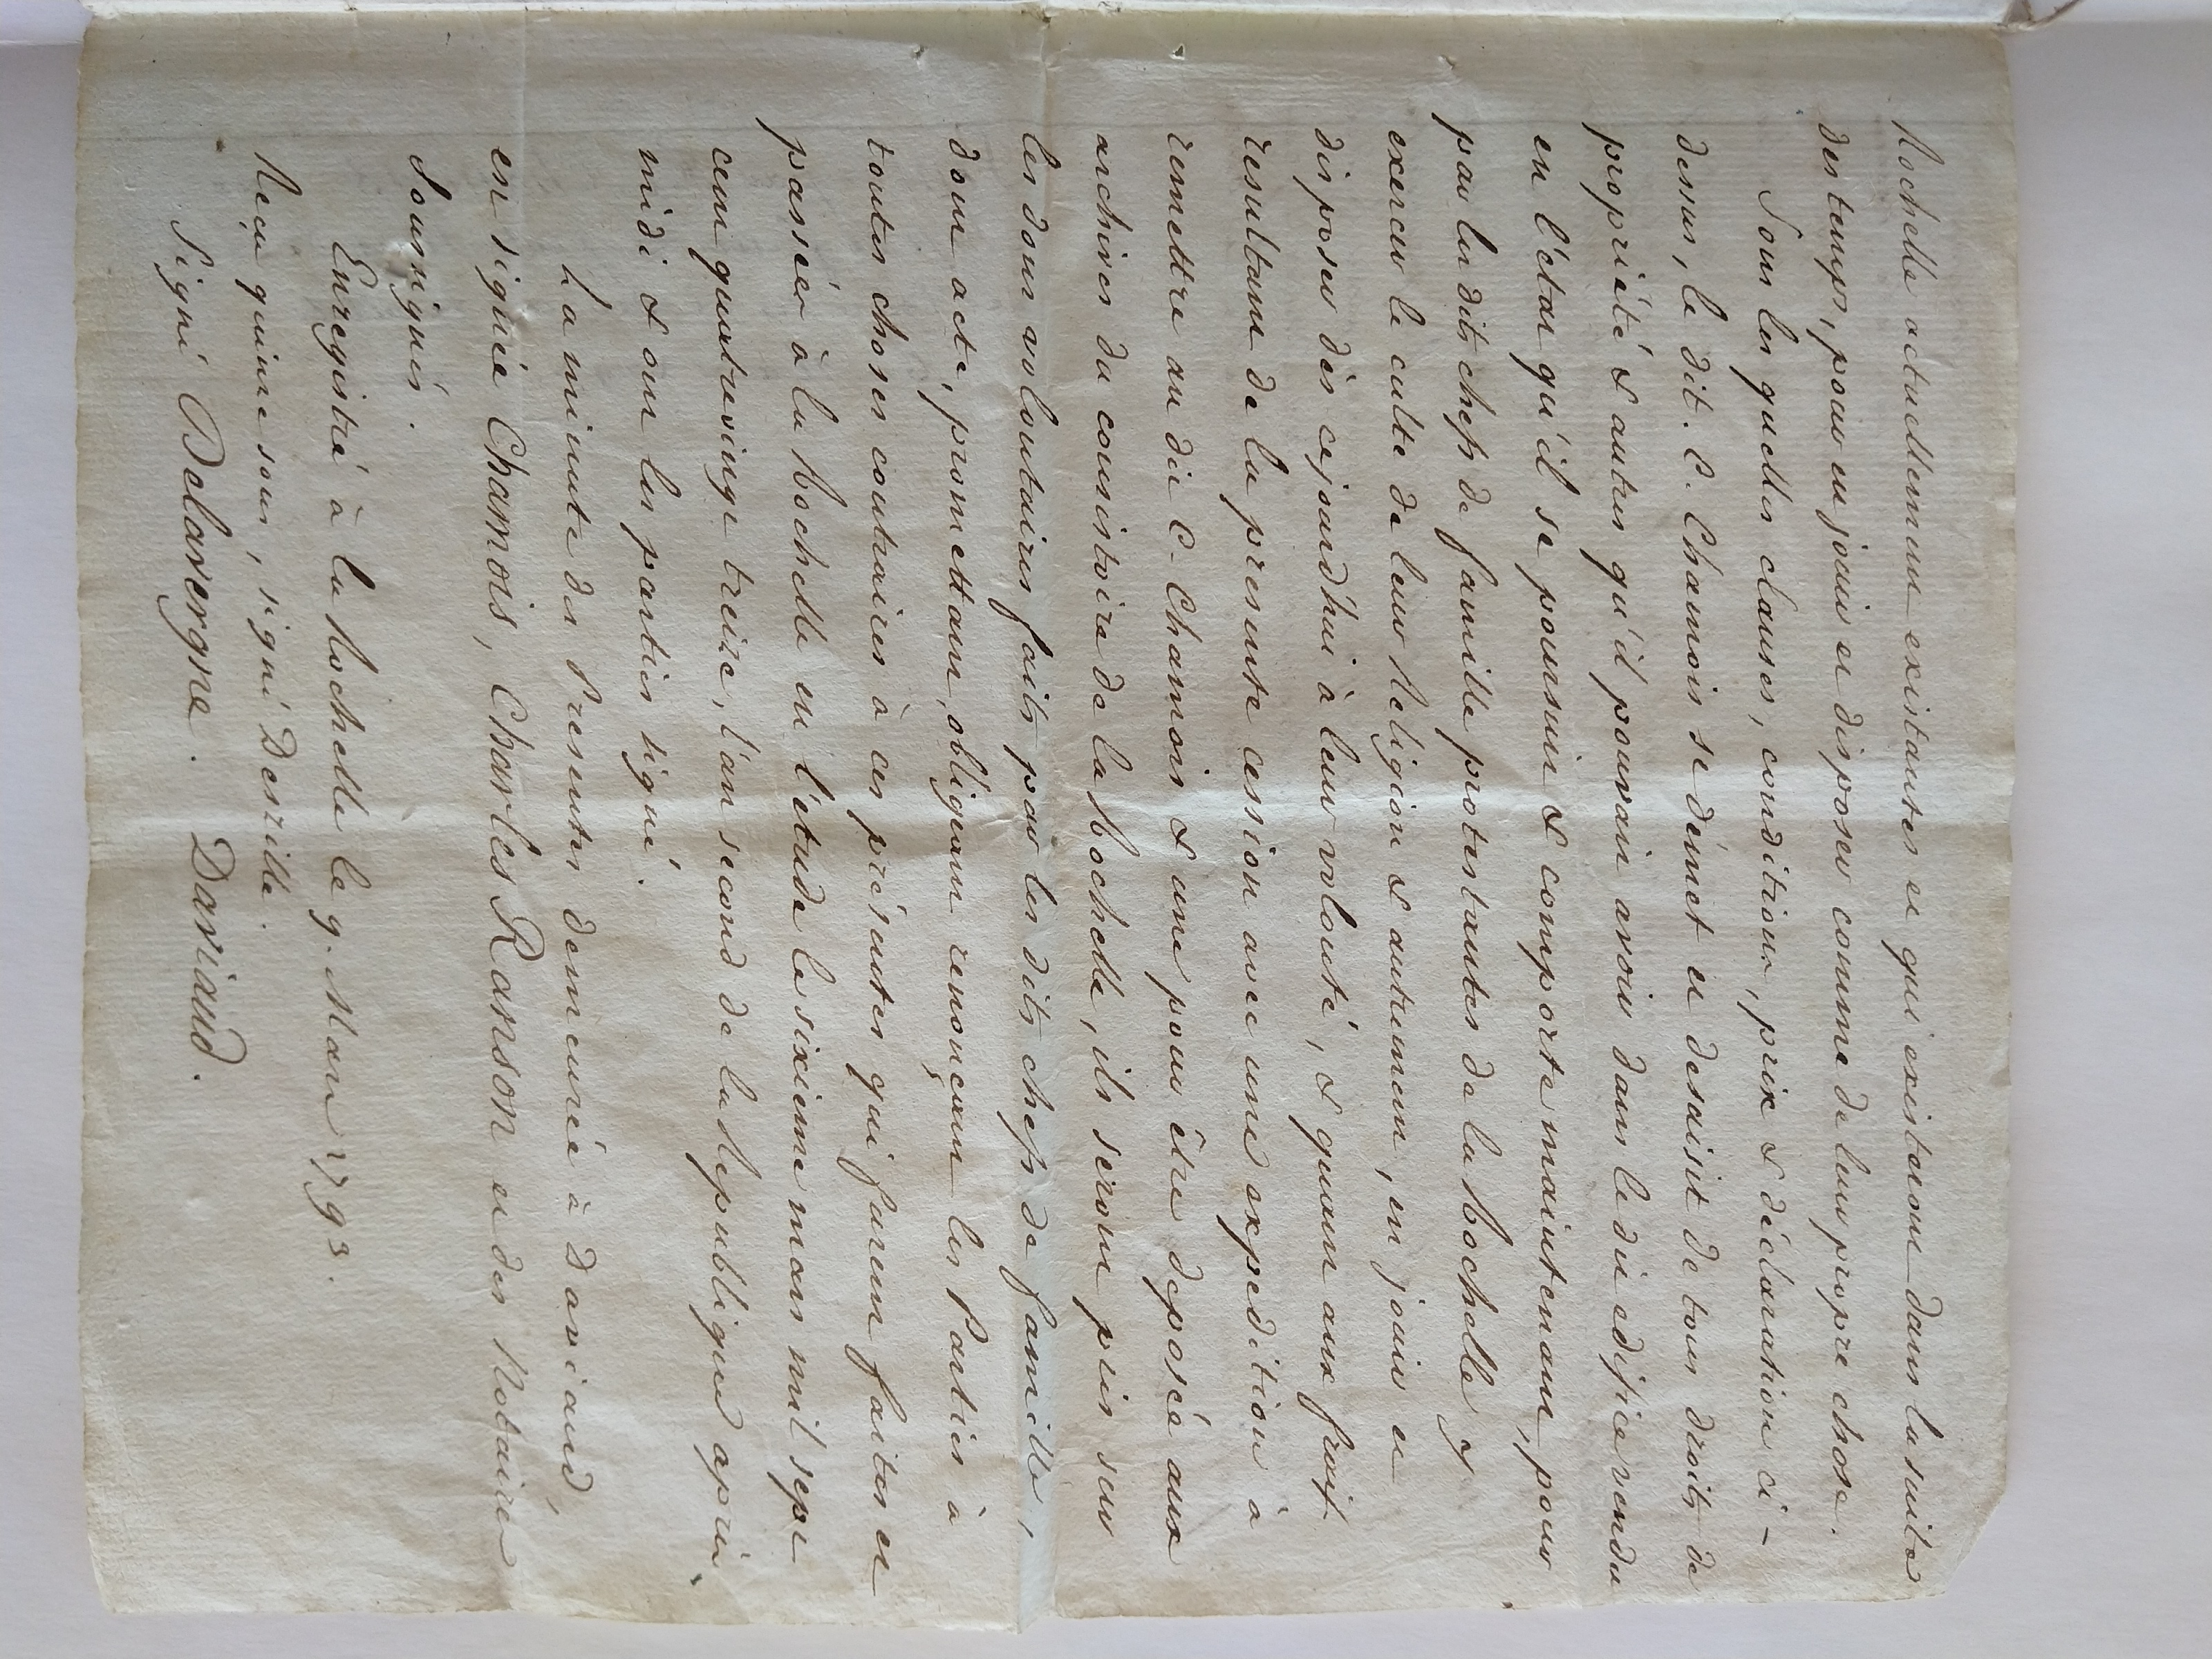 Rochelle actuellement existantes et qui existeront dans la suite
des temps, pour en jouir et disposer comme de leur propre chose.
Sous les quelles clauses, conditions, prix & déclaration ci-
dessus, le dit. C. Chamois se démet et desaisit de tous droits de
propriété & autres qu'il pouvait avoir dans le dit edifice vendu
en l'état qu'il se poursuit & comporte maintenant, pour
par les dits chefs de famille protestantes de la Rochelle y
exercer le culte de leur Religion & autrement, en jouir et
disposer dès cejourd'hui à leur volonté, & quant aux frais
resultant de la presente cession avec une expedition à
remettre au dit C. Chamois & une pour être deposée aux
archives du consistoire de la Rochelle, ils seront pris sur
les dons volontaires faits par les dits chefs de famille,
dont acte, promettant, obligeant renonçant les Parties à
toutes choses contraires à ces présentes qui furent faites et
passées à la Rochelle en l'étude le sixieme mars mil sept
cent quatrevingt treize, l'an second de la Republique après
midi & ont les parties signé.
La minute des Presentes demeurée à Daviaud,
en signée Chamois, Charles Ranson et des Notaires
Soussignés.
Enregistré à la Rochelle le 9. Mars 1793.
Reçu quinze sous, signé Desrille.
Signé Delavergne. Daviaud.